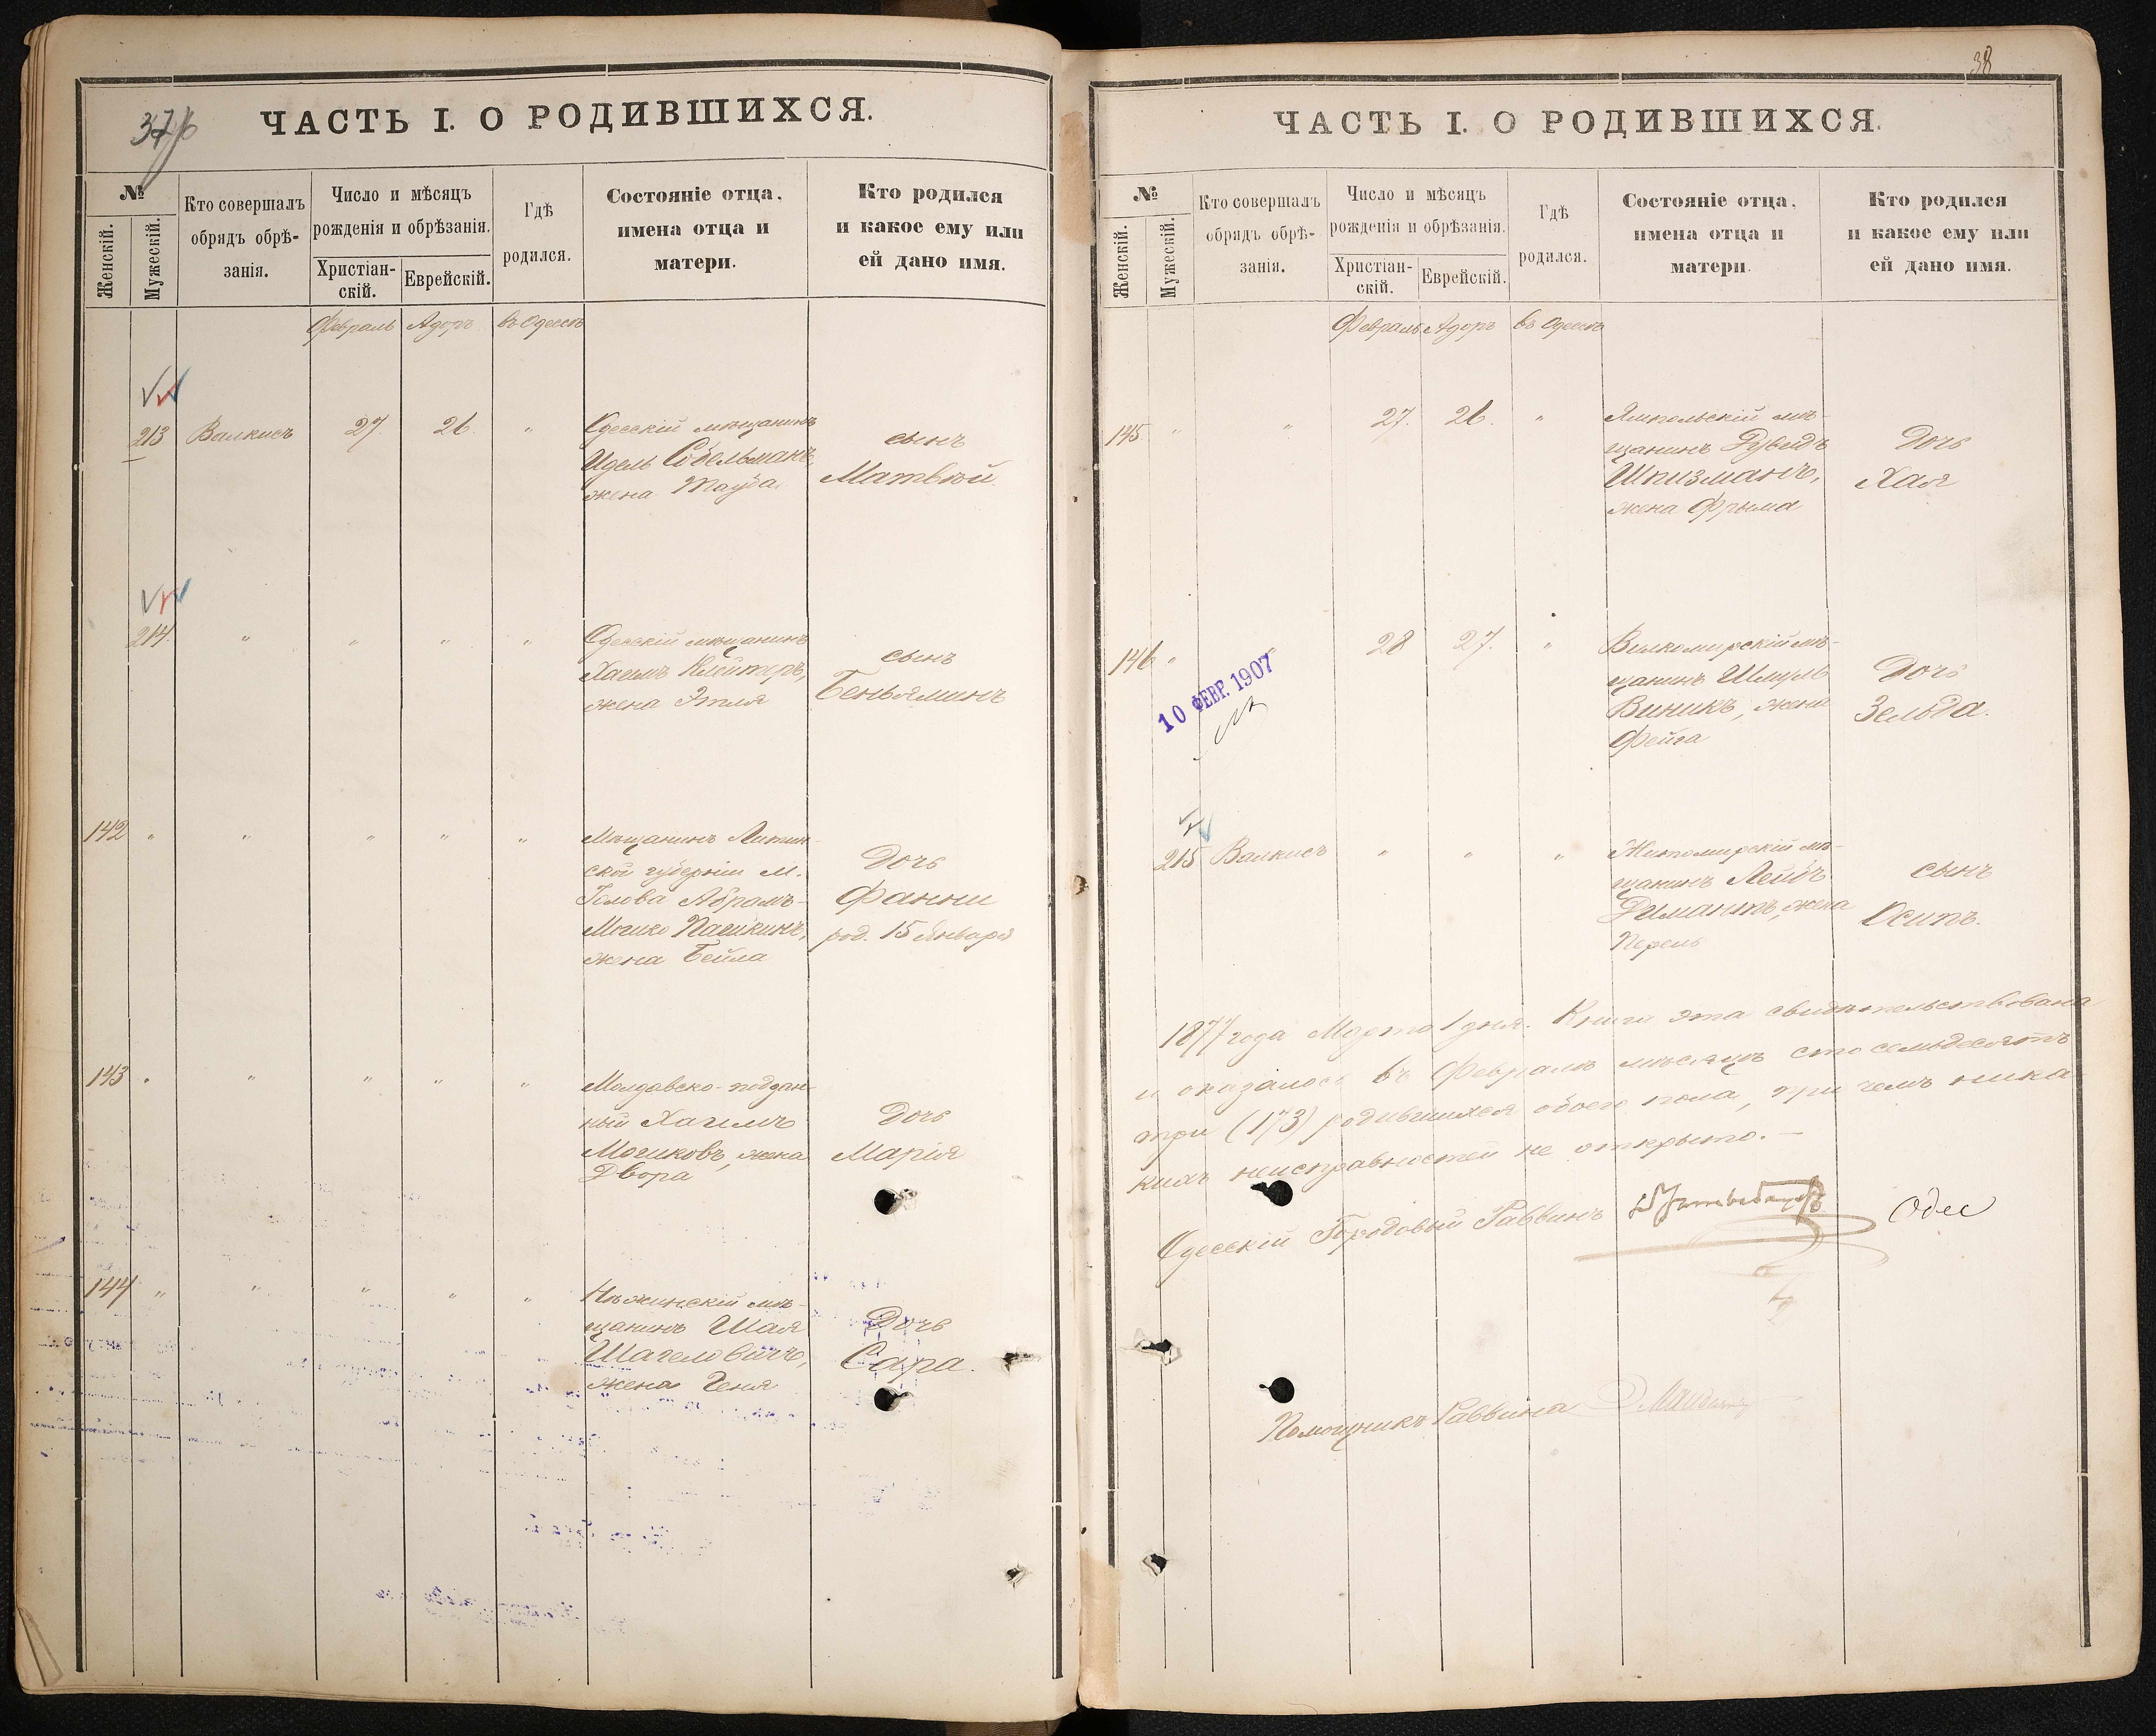 37/б
ЧАСТЬ I. О РОДИВШИХСЯ.
№
Женскій.
Мужескій.
Кто совершалъ
обрядъ обрѣ-
занія.
Число и мѣсяцъ
рожденія и обрѣзанія.
Христіан-
скій.
Еврейскій.
Гдѣ
родился.
Состояніе отца,
имена отца и
матери.
Кто родился
и какое ему или
ей дано имя.
Февраль Адоръ въ Одессѣ
213 Валкисъ 27. 26. " Одесскій мѣщанинъ
Идель Собельманъ,
жена Тауба
сынъ
Матвѣй
214. " " " " Одесскій мѣщанинъ
Хаемъ Клейнеръ,
жена Этля
сынъ
Беньяминъ
142 " " " " " Мѣщанинъ
ской губерніи м.
Абрамъ-
Мошко Пашкинъ,
жена Бейла
Дочь
Фанни
род. 15 Января
143 " " " " " Молдавско-поддан-
ный Хаимъ
Мошковъ, жена
Двора
Дочь
Марія
144 " " " " " Нѣжинскій мѣ-
щанинъ Шая
Шагеловичъ,
жена Геня
Дочь
Сара.
38
ЧАСТЬ I. О РОДИВШИХСЯ.
№
Женскій.
Мужескій.
Кто совершалъ
обрядъ обрѣ-
занія.
Число и мѣсяцъ
рожденія и обрѣзанія.
Христіан-
скій.
Еврейскій.
Гдѣ
родился.
Состояніе отца,
имена отца и
матери.
Кто родился
и какое ему или
ей дано имя.
Февраль Адоръ въ Одессѣ
145 " " 27. 26. " Ямпольскій мѣ-
щанинъ Рувидъ
Шпизманъ,
жена Фрыма
Дочь
Хая
146 " " 28 27. " Вилкомирскій мѣ-
щанинъ Шмуль
Виникъ, жена
Фейга
Дочь
Зельда.
10 ФЕВР. 1907
215 Валкисъ " " " Житомирскій мѣ-
щанинъ Лейбъ
Димантъ, жена
Перель
сынъ
Осипъ.
1877 года Марта 1 дня. Книга эта свидѣтельствована
и оказалось въ Февралѣ мѣсяцѣ сто семьдесятъ
три (173) родившихся обоего пола, при чемъ ника
кихъ неисправностей не открыто. —
Одесскій Городовый Раввинъ
Одес
Помощникъ Раввина